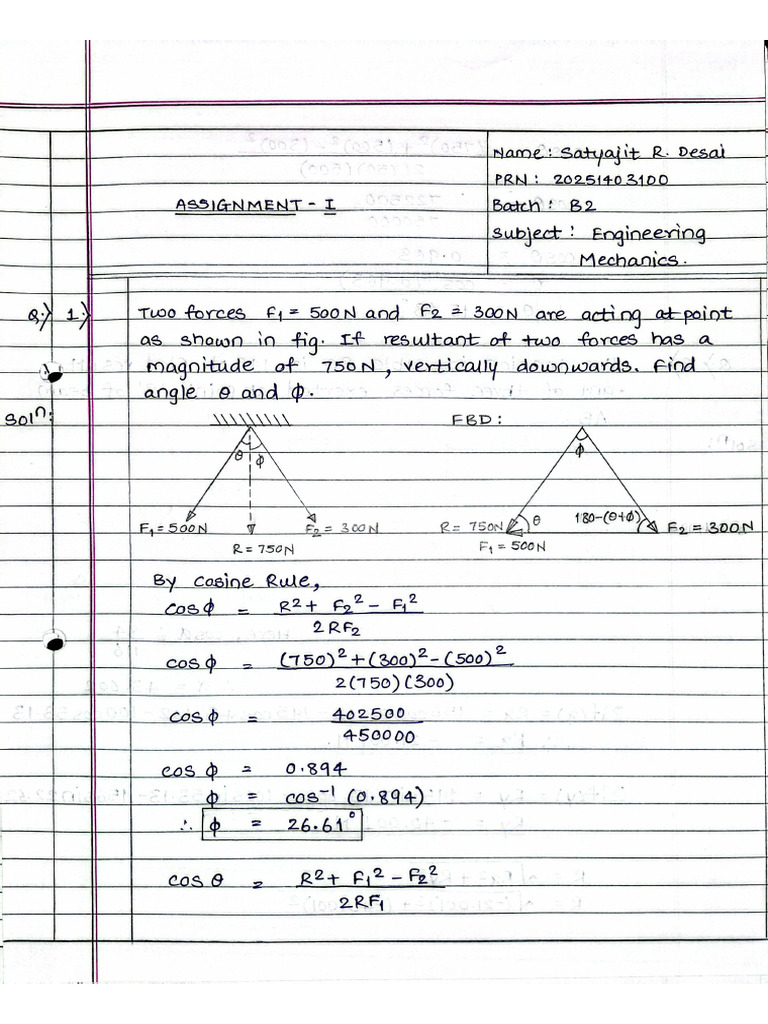 Name: Satyajit R. Desai
PRN: 20251403100
ASSIGNMENT - I
Batch: B2
Subject: Engineering
Mechanics.
Q.) 1.) Two forces F1 = 500N and F2 = 300N are acting at point
as shown in fig. If resultant of two forces has a
magnitude of 750N, vertically downwards. Find
angle θ and ϕ.
Soln:
FBD:
θ ϕ
ϕ
F1 = 500N
F2 = 300N
R = 750N
R = 750N
θ
180-(θ+ϕ)
F2 = 300N
F1 = 500N
By Cosine Rule,
cos ϕ = R² + F2² - F1² / 2RF2
cos ϕ = (750)² + (300)² - (500)² / 2(750)(300)
cos ϕ = 402500 / 450000
cos ϕ = 0.894
ϕ = cos⁻¹ (0.894)
∴ ϕ = 26.61°
cos θ = R² + F1² - F2² / 2RF1